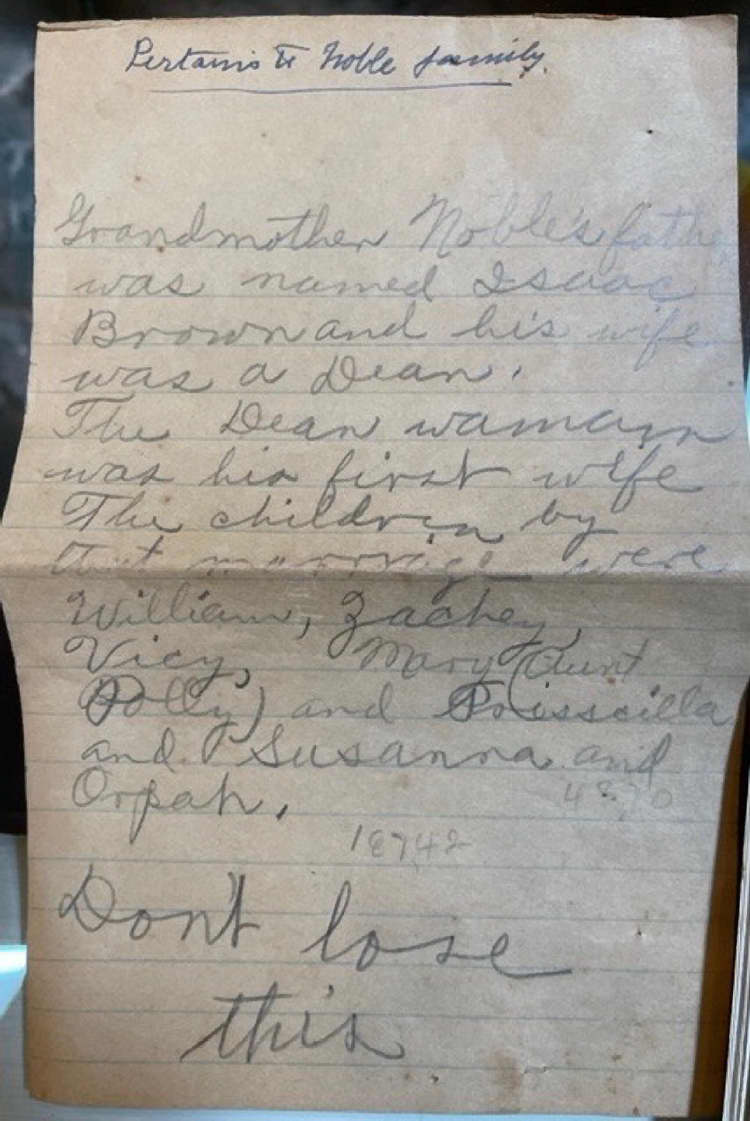 Pertains to Noble family.
Grandmother Noble's father
was named Isaac
Brown and his wife
was a Dean.
The Dean wamam
was his first wife
The children by
that marrage were
William, Zachey,
Vicy, Mary (Aunt
Polly) and Prisscilla
and Susanna and
Orpah.
18742
Don't lose
this